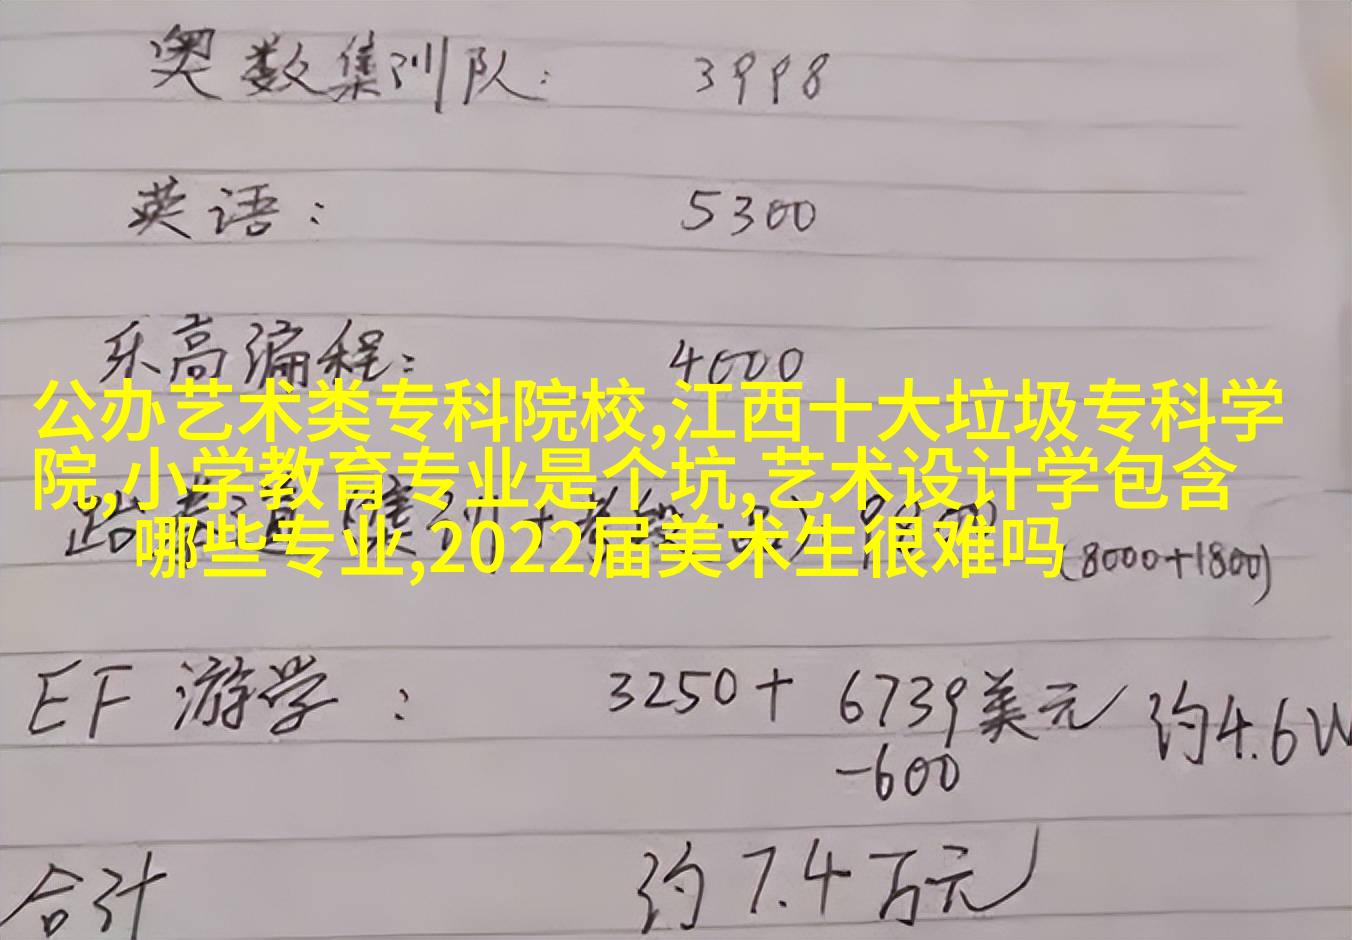 奥数集训队: 3998
英语: 5300
乐高编程: 4000
公办艺术类专科院校,江西十大垃圾专科学
院,小学教育专业是个坑,艺术设计学包含
哪些专业,2022届美术生很难吗
(8000+1800)
EF 游学: 3250+ 6739美元 约4.6W
-600
合计 约7.4万元